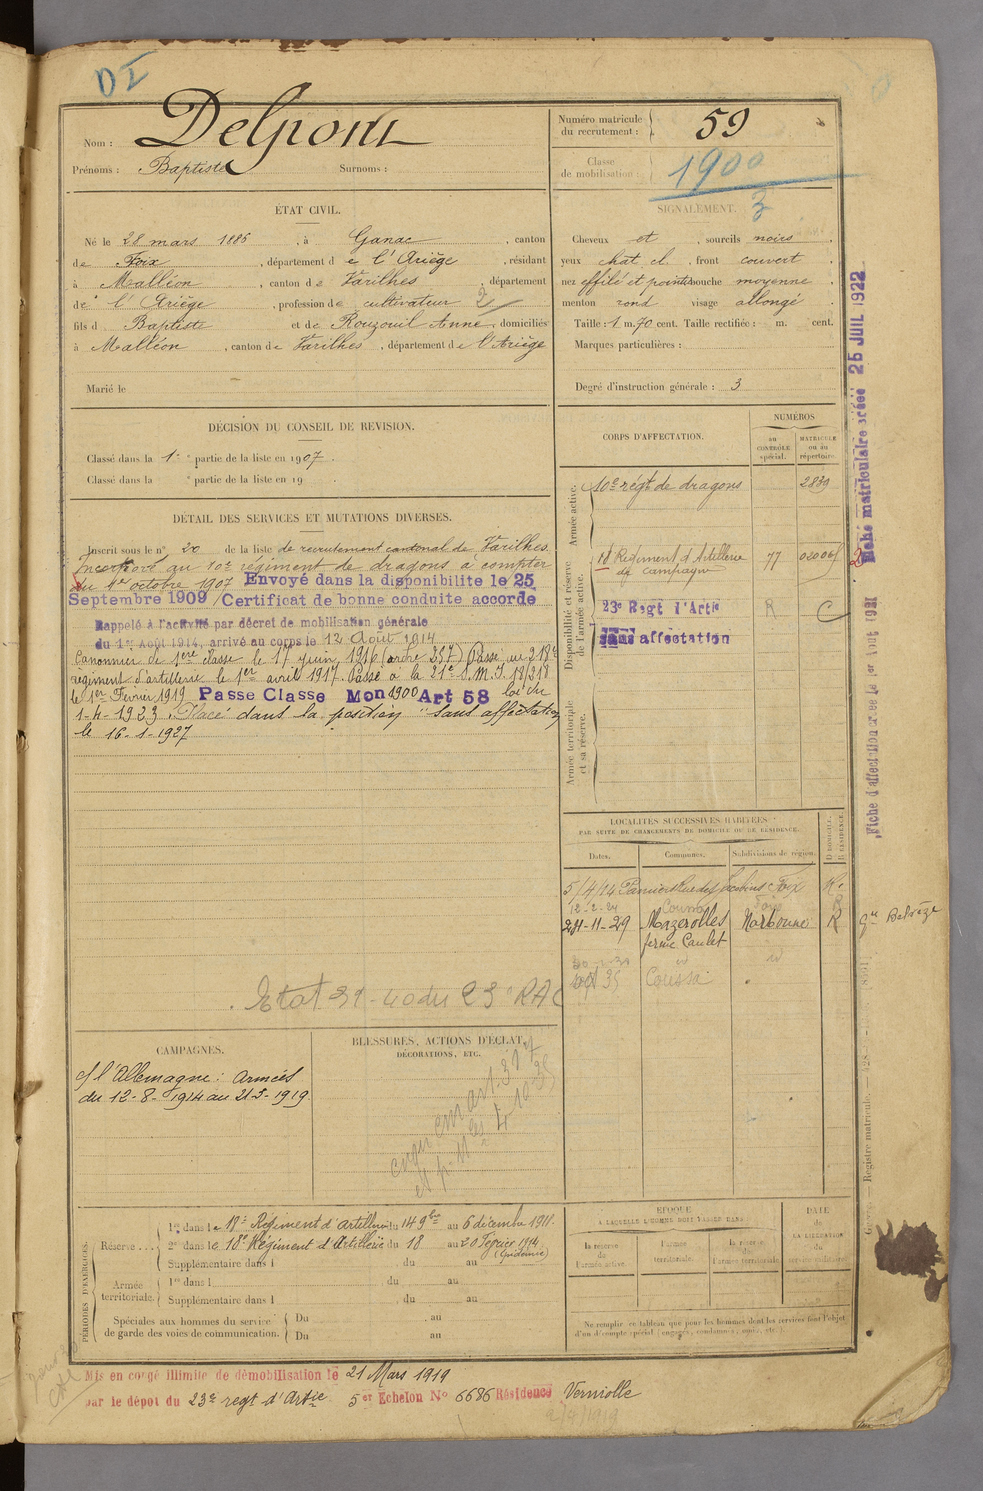 DI
Nom : Delpont
Prénoms : Baptiste Surnoms :
Numéro matricule du recrutement : 59
Classe de mobilisation : 1900
ÉTAT CIVIL.
Né le 28 mars 1886, à Ganac, canton
de Foix, département de l'Ariège, résidant
à Malléon, canton de Varilhes, département
de l'Ariège, profession de cultivateur 2
fils d Baptiste et de Rouzouil Anne, domiciliés
à Malléon, canton de Varilhes, département de l'Ariège
Marié le
SIGNALEMENT. 3
Cheveux et, sourcils noirs,
yeux chat cl, front couvert,
nez effilé et pointu, bouche moyenne,
menton rond visage allongé
Taille : 1 m. 70 cent. Taille rectifiée : m. cent.
Marques particulières :
Degré d'instruction générale : 3
DÉCISION DU CONSEIL DE REVISION.
Classé dans la 1re partie de la liste en 1907.
Classé dans la e partie de la liste en 19
DÉTAIL DES SERVICES ET MUTATIONS DIVERSES.
Inscrit sous le n° 20 de la liste de recrutement cantonal de Varilhes.
Incorporé au 10e régiment de dragons à compter
du 1er octobre 1907 Envoyé dans la disponibilité le 25
Septembre 1909 / Certificat de bonne conduite accorde
Rappelé à l'activité par décret de mobilisation générale
du 1er Août 1914, arrivé au corps le 12 Août 1914
Canonnier de 1ère classe le 17 juin 1916 (ordre 257) Passé au 218e
régiment d'artillerie le 1er avril 1917. Passé à la 21e S.M.I. 18/218
le 1er Février 1919 Passe Classe Mon 1900 Art 58 loi du
1-4-1923. Placé dans la position "sans affectation
le 16-1-1927
Etat 39-40 du 23e RAC
CORPS D'AFFECTATION.
NUMÉROS
au CONTRÔLE spécial.
MATRICULE ou au répertoire.
Armée active.
10e régt de dragons 2839
Disponibilité et réserve de l'armée active.
18 Régiment d'Artillerie de campagne 77 02006
23e Regt d'Artie R C
sans affectation
Armée territoriale et sa réserve.
LOCALITÉS SUCCESSIVES HABITÉES
PAR SUITE DE CHANGEMENTS DE DOMICILE OU DE RÉSIDENCE.
Dates. Communes. Subdivisions de région. D DOMICILE. R RÉSIDENCE.
5/4/14 Pamiers Rue des Jacobins Foix R.
12-2-24 Coussa Foix R
24-11-29 Mazerolles Narbonne R Gie Belvèze
ferme Caulet
35 Coussa
CAMPAGNES.
c/ l'Allemagne : Armées
du 12-8-1914 au 21-3-1919.
BLESSURES, ACTIONS D'ÉCLAT,
DÉCORATIONS, ETC.
PÉRIODES D'EXERCICES.
Réserve
1re dans le 18e Régiment d'Artillerie du 14 9bre au 6 décembre 1911.
2e dans le 18e Régiment d'Artillerie du 18 au 20 Février 1914
(Epidémie)
Supplémentaire dans l du au
Armée territoriale.
1re dans l du au
Supplémentaire dans l du au
Spéciales aux hommes du service de garde des voies de communication.
Du au
Du au
ÉPOQUE
À LAQUELLE L'HOMME DOIT PASSER DANS
la réserve de l'armée active
l'armée territoriale.
la réserve de l'armée territoriale
DATE de LA LIBÉRATION du service militaire
Ne remplir ce tableau que pour les hommes dont les services font l'objet
d'un décompte spécial (engagés, condamnés, omis, etc.)
Mis en congé illimité de démobilisation le 21 Mars 1919
par le dépôt du 23e regt d'Artie 5e Echelon No 6686 Résidence Verniolle
2/4/1919
Fiche d'affectation créée le 1er Août 1921
Fiché matriculaire créée 25 JUIL 1922